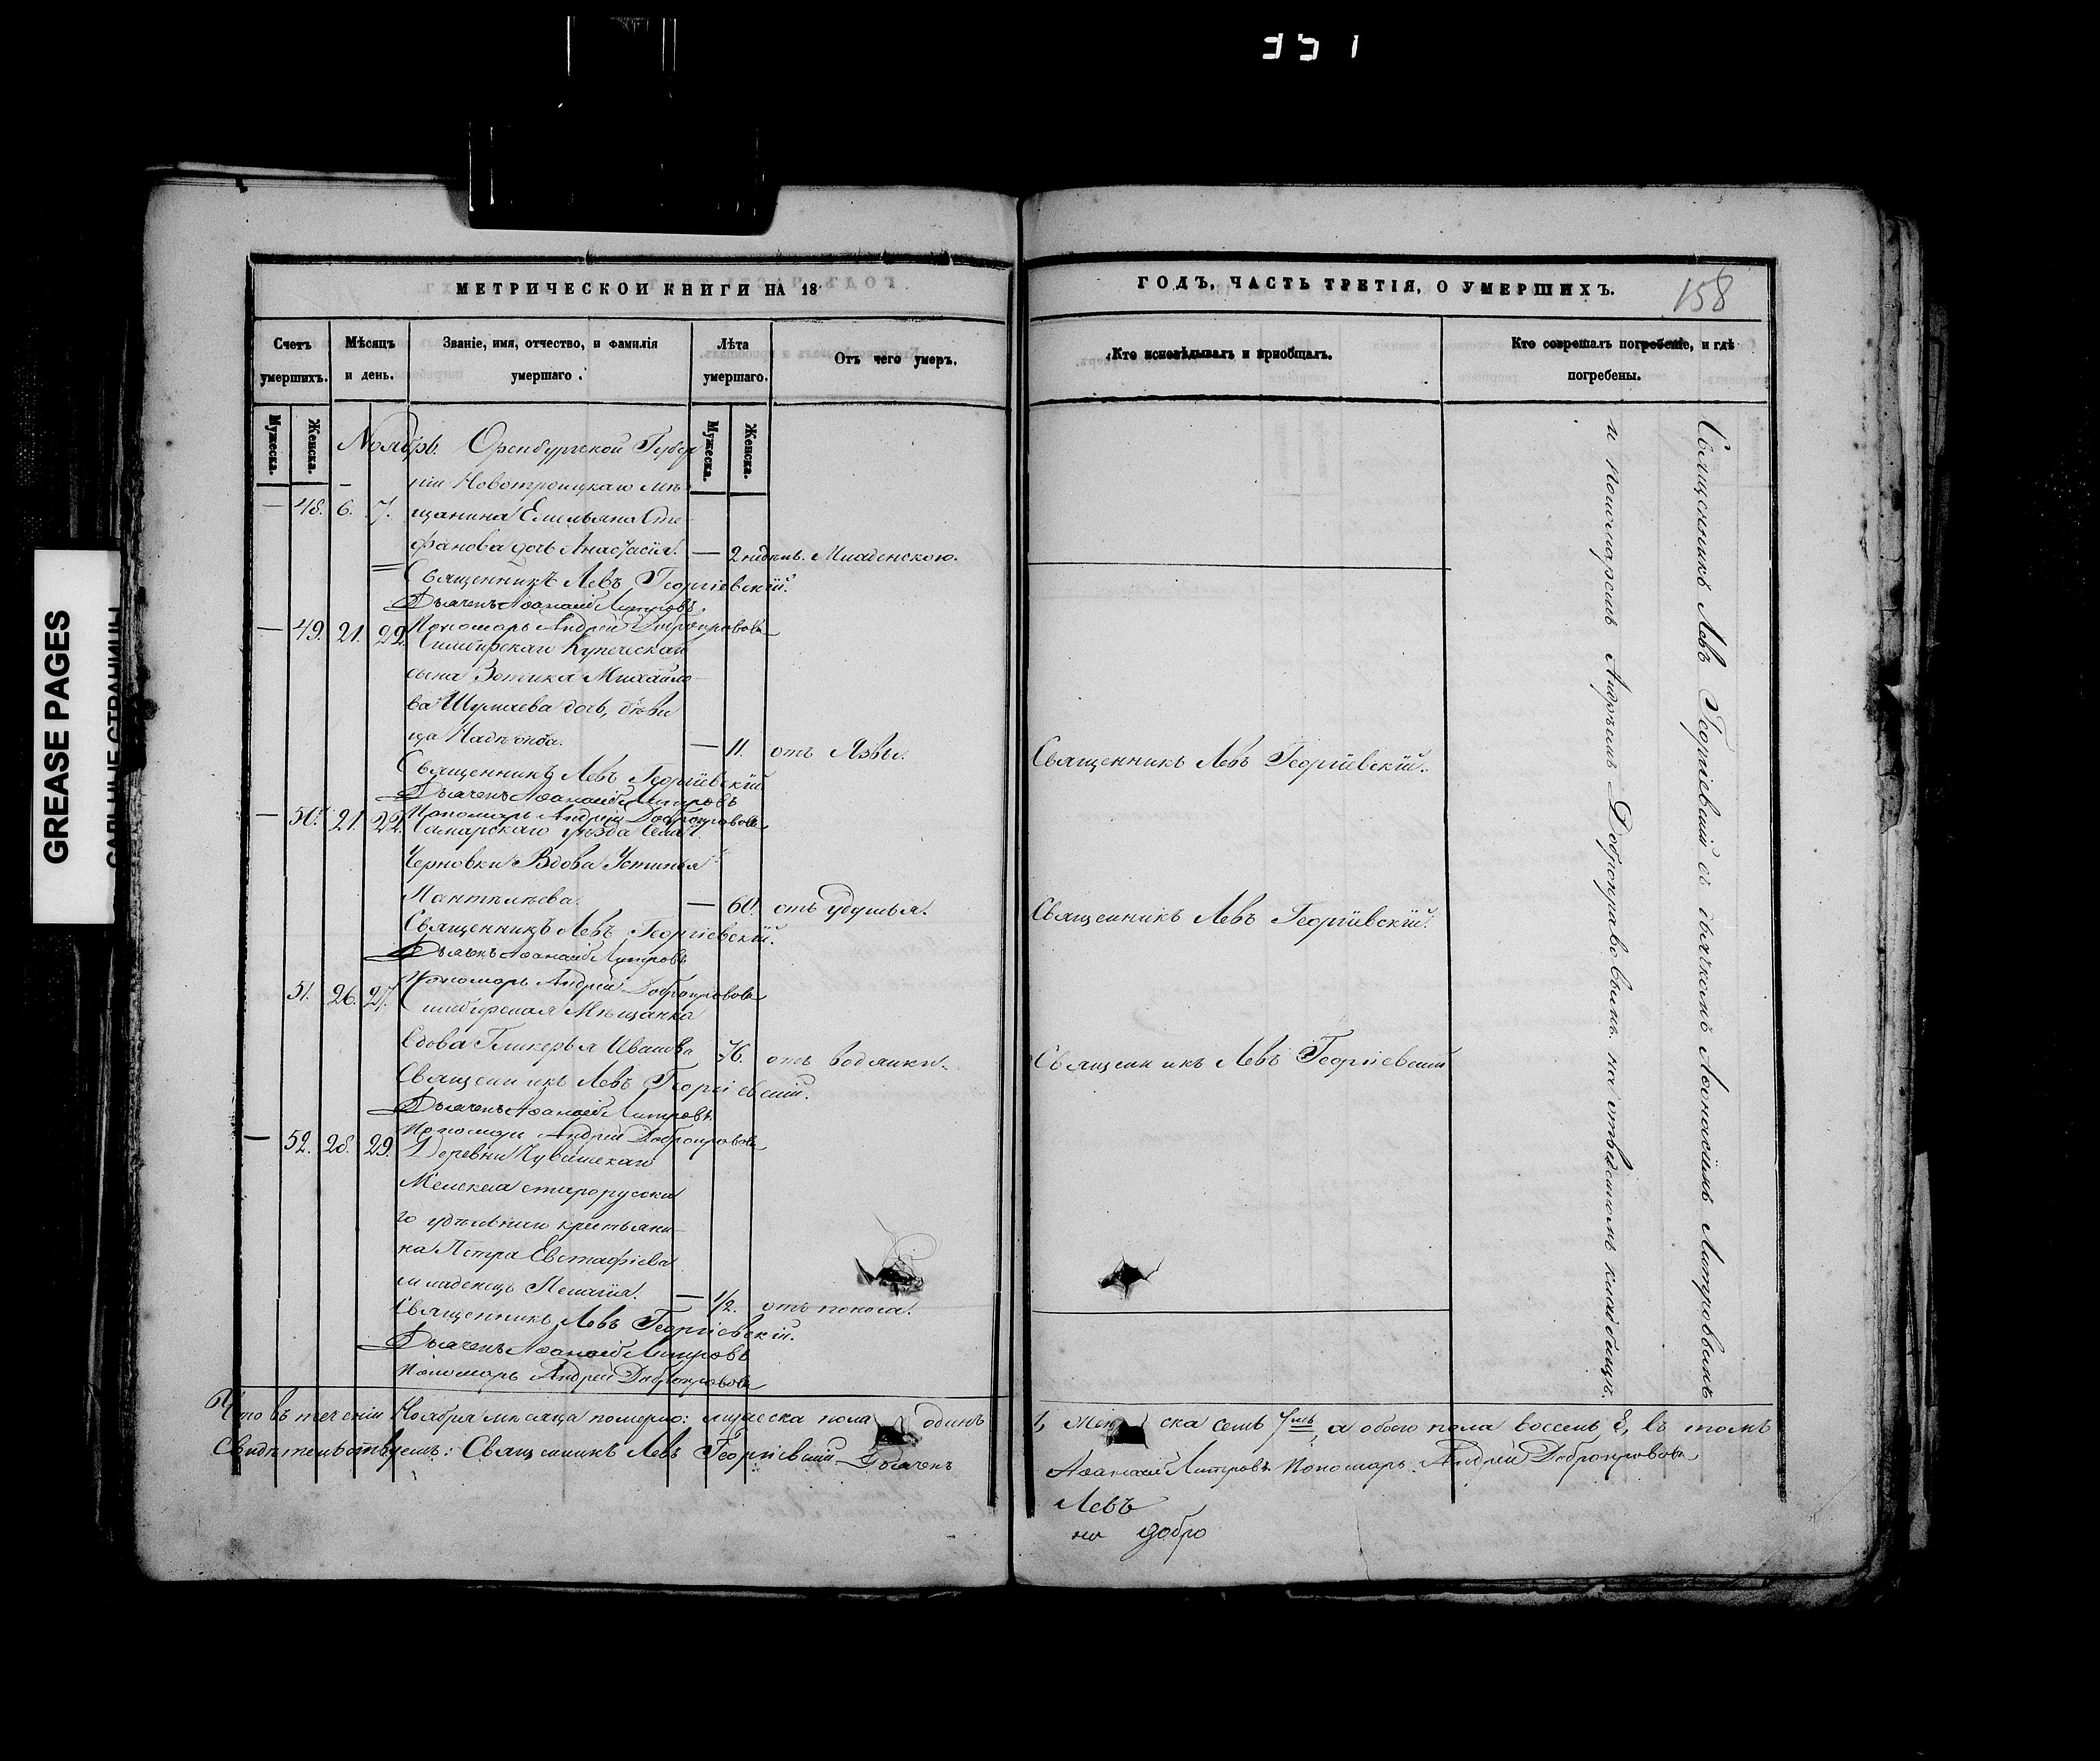 351
GREASE PAGES
САЛЬНЫЕ СТРАНИЦЫ
МЕТРИЧЕСКОЙ КНИГИ НА 18
Счетъ умершихъ.
Мѣсяцъ и день.
Званіе, имя, отчество, и фамилія умершаго.
Лѣта умершаго.
Отъ чего умеръ.
Мужеска.
Женска.
Мужеска.
Женска.
Ноябрь. Оренбургской Губер
ніи Новотроицкаго мѣ
— 48. 6. 7. щанина Емельяна Сте
фанова дочь Анастасія. — 2 недѣль. Младенскою.
Священникъ Левъ Георгіевскій.
Дьячекъ Аѳанасій
— 49. 21. 22. Пономарь Андрей Добронравовъ
Симбирскаго Купеческаго
сына Зотика Михайло
ва Шушаева дочь, дѣви
ца Надѣжда. — 11. отъ Язвы.
Священникъ Левъ Георгіевскій
Дьячекъ Аѳанасій
Пономарь Андрей Добронравовъ
— 50. 21. 22. Самарскаго уѣзда Села
Черновки Вдова Устинья
Пантелѣева. — 60. отъ удушья.
Священникъ Левъ Георгіевскій.
Дьячекъ Аѳанасій
Пономарь Андрей Добронравовъ
51. 26. 27. Симбирская Мѣщанка
вдова Гликерья Иванова 76. отъ водянки.
Священникъ Левъ Георгіевскій.
Дьячекъ Аѳанасій
Пономарь Андрей Добронравовъ
— 52. 28. 29. Деревни Чувашскаго
Мелекеса старорусска
го удѣльнаго крестьяни
на Петра Евстафіева
младенецъ Пелагія. — 1/2. отъ поноса.
Священникъ Левъ Георгіевскій.
Дьячекъ Аѳанасій
Пономарь Андрей Добронравовъ
Что въ теченіи Ноября мѣсяца померло: мужеска пола одинъ
Свидѣтельствуемъ: Священникъ Левъ Георгіевскій Дьячекъ
ГОДЪ, ЧАСТЬ ТРЕТІЯ, О УМЕРШИХЪ.
158
Кто исповѣдывалъ и пріобщалъ.
Кто совершалъ погребеніе, и гдѣ погребены.
Священникъ Левъ Георгіевскій.
Священникъ Левъ Георгіевскій.
Священникъ Левъ Георгіевскій
Священникъ Левъ Георгіевскій съ дьячкомъ Аѳонасіемъ
и пономаремъ Андреемъ Добронравовымъ. на отведенномъ кладбищѣ.
1, Женска семь 7мь, а обоего пола восемь, 8, въ томъ
Аѳанасій Пономарь Андрей Добронравовъ
Левъ
на добро